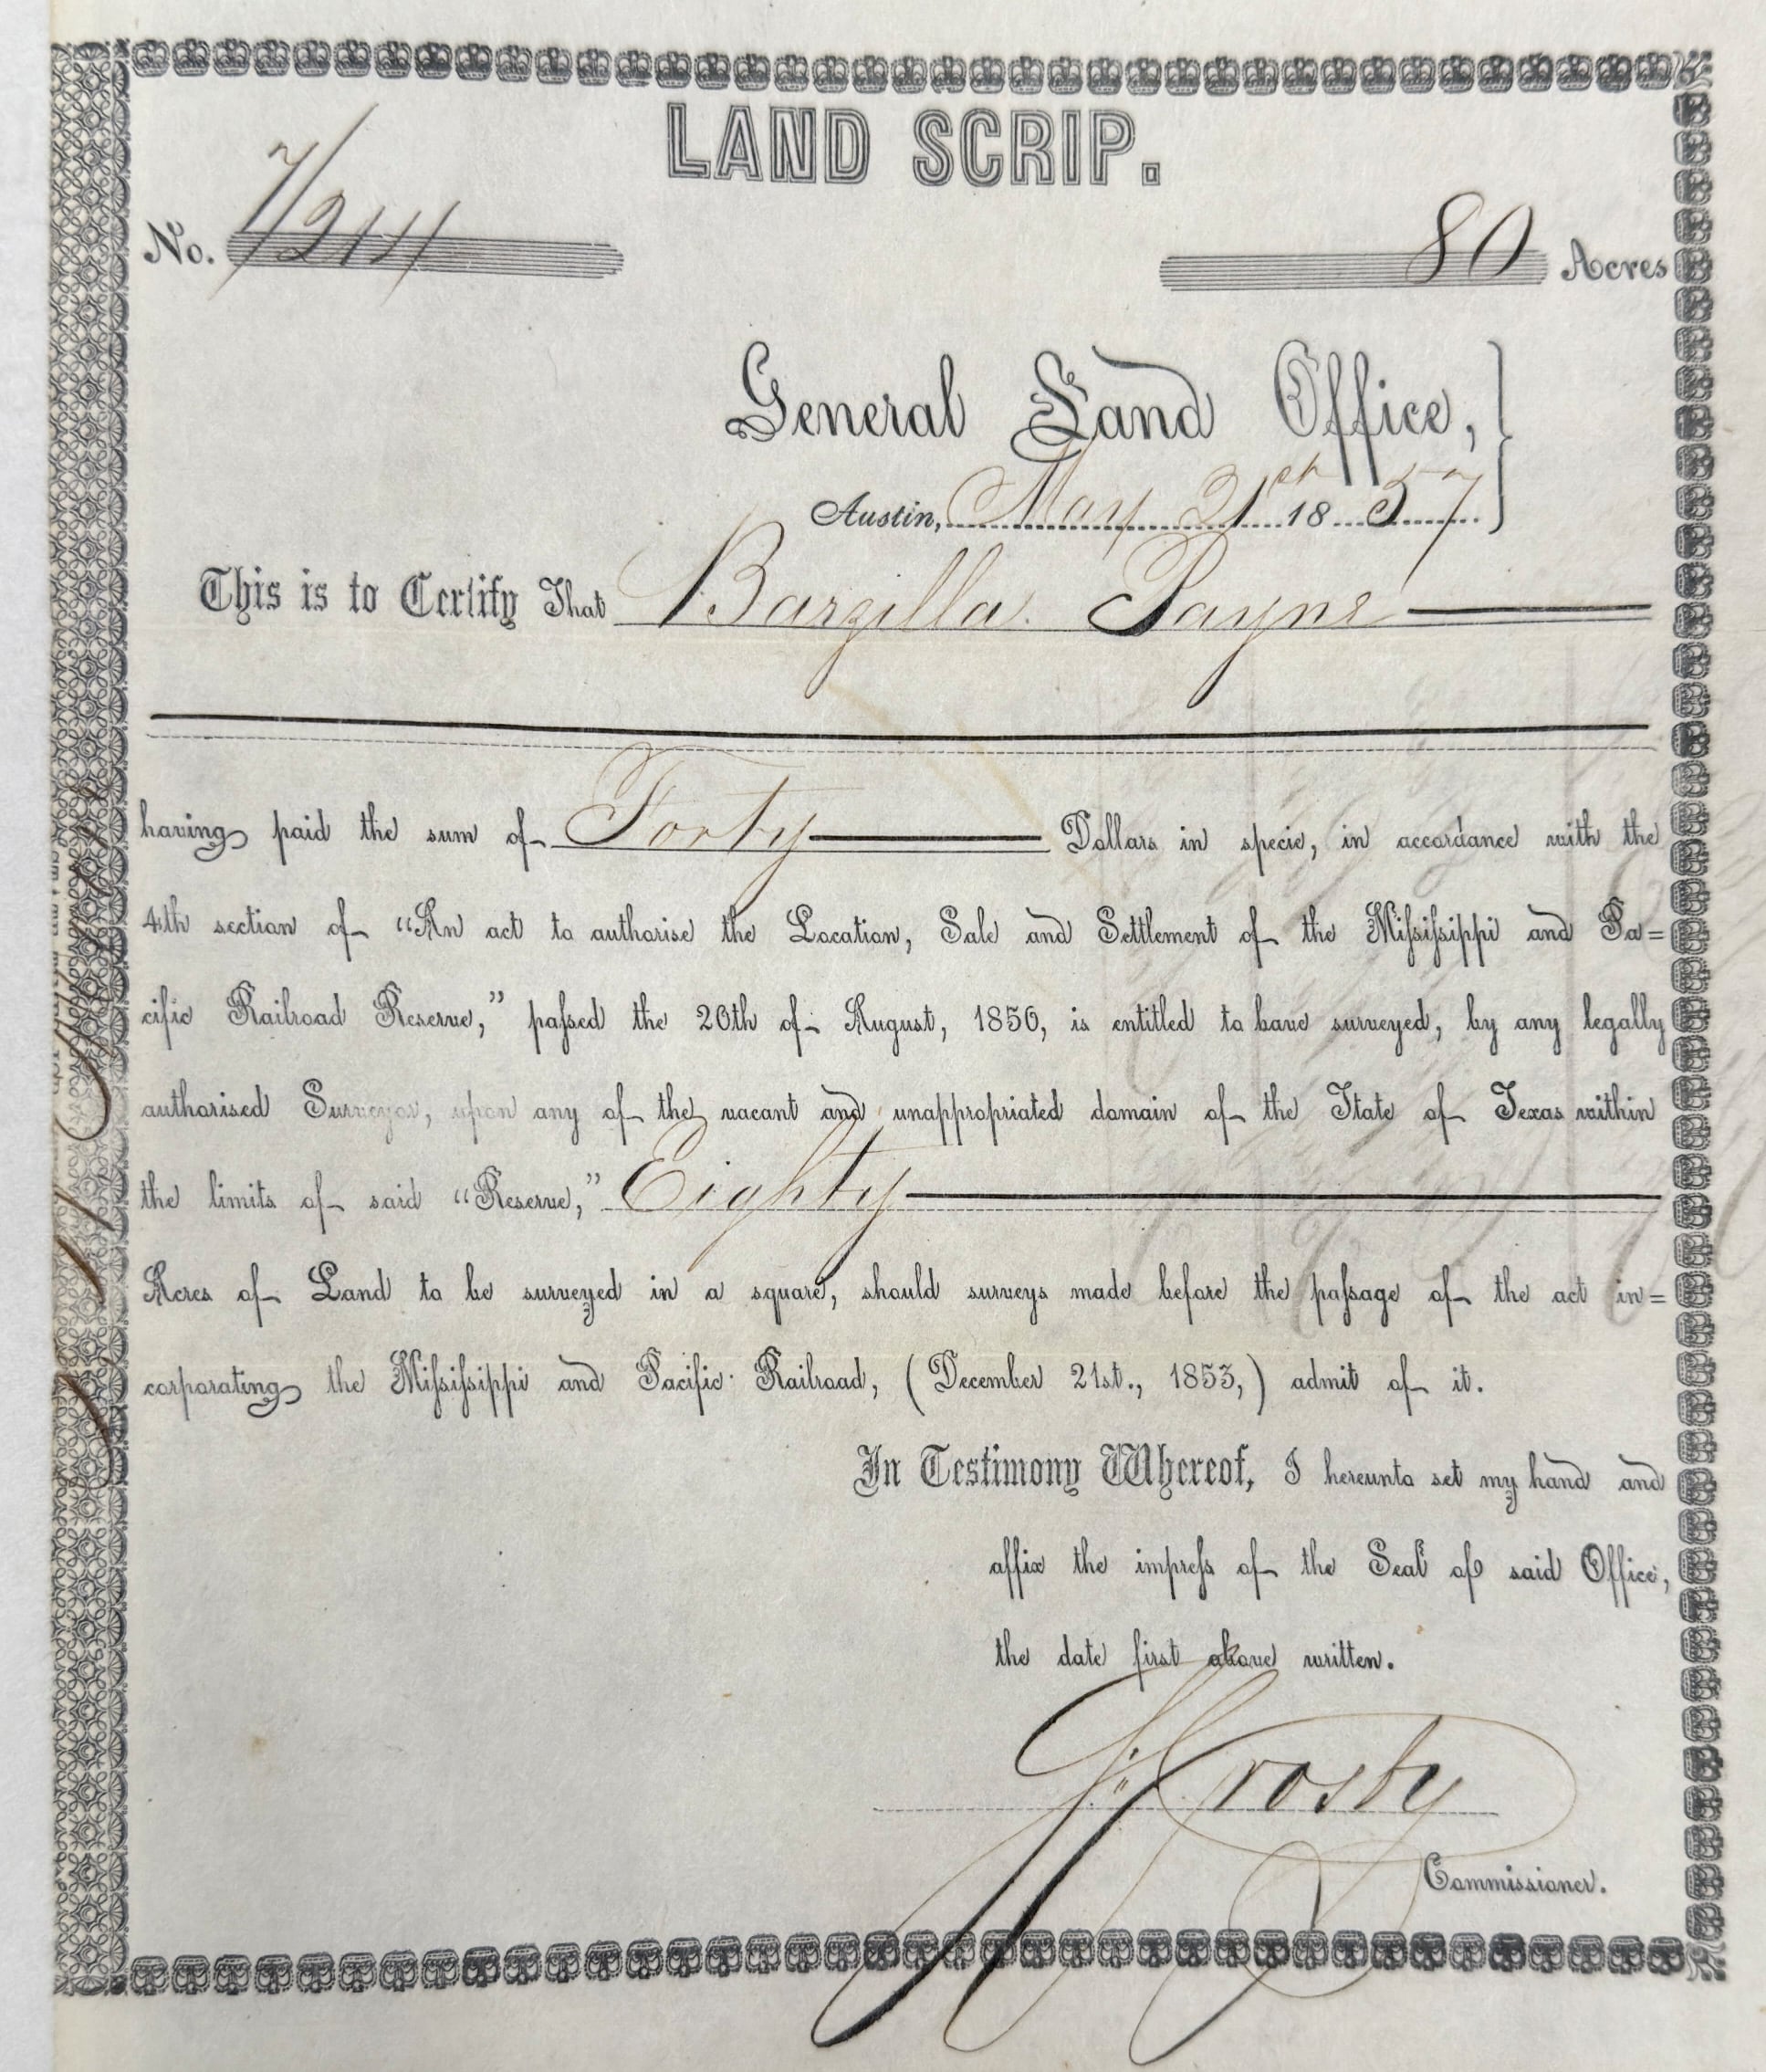 LAND SCRIP.
No. 7/211 80 Acres
General Land Office,
Austin, May 21st 1857
This is to Certify That Barzilla Payne
having paid the sum of Forty Dollars in specie, in accordance with the
4th section of "An act to authorise the Location, Sale and Settlement of the Mississippi and Pa=
cific Railroad Reserve," passed the 20th of August, 1856, is entitled to have surveyed, by any legally
authorised Surveyor, upon any of the vacant and unappropriated domain of the State of Texas within
the limits of said "Reserve," Eighty
Acres of Land to be surveyed in a square, should surveys made before the passage of the act in=
corporating the Mississippi and Pacific Railroad, (December 21st., 1853,) admit of it.
In Testimony Whereof, I hereunto set my hand and
affix the impress of the Seal of said Office,
the date first above written.
Crosby
Commissioner.